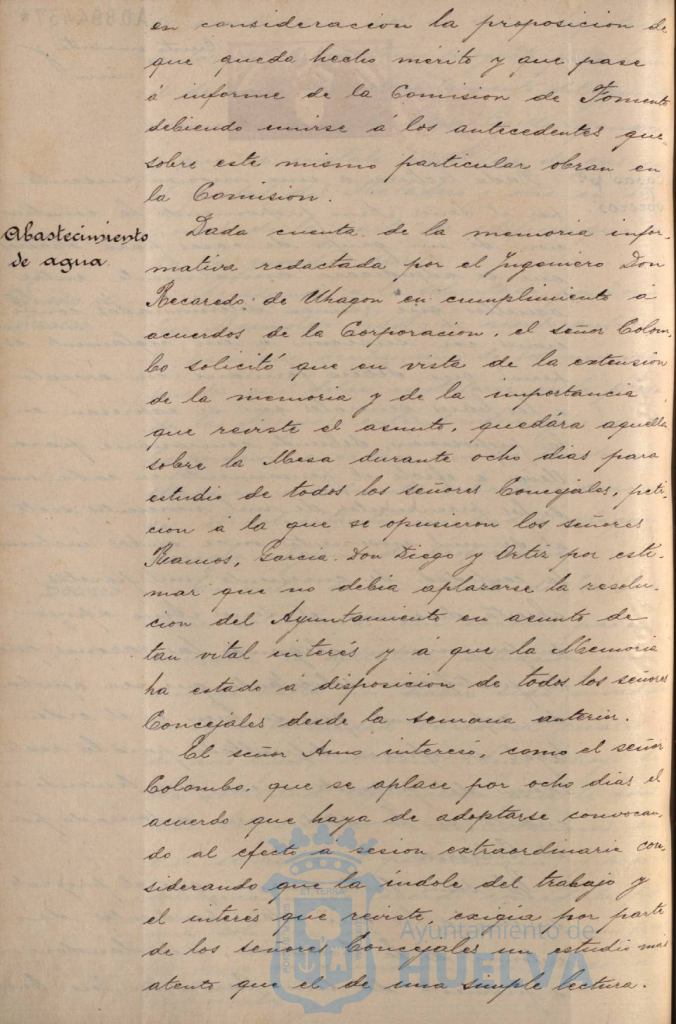 en consideracion la proposicion de
que queda hecho merito y que pase
á informe de la Comision de Fomento
debiendo unirse á los antecedentes que
sobre este mismo particular obran en
la Comision.
Abastecimiento
de agua.
Dada cuenta de la memoria infor-
mativa redactada por el Ingeniero Don
Recaredo de Uhagon en cumplimiento á
acuerdos de la Corporacion, el señor Colom-
bo solicitó que en vista de la extensión
de la memoria y de la importancia
que reviste el asunto, quedára aquella
sobre la Mesa durante ocho dias para
estudio de todos los señores Concejales, peti-
cion á la que se opusieron los señores
Ramos, Garcia Don Diego y Ortiz por esti-
mar que no debia aplazarse la resolu-
cion del Ayuntamiento en asunto de
tan vital interés y á que la Memoria
ha estado á disposicion de todos los señores
Concejales desde la semana anterior.
El señor Amo interesó, como el señor
Colombo, que se aplace por ocho dias el
acuerdo que haya de adoptarse convocan-
do al efecto á sesion extraordinaria con-
siderando que la índole del trabajo y
el interés que reviste, exigia por parte
de los señores Concejales un estudio más
atento que el de una simple lectura.
Ayuntamiento de
HUELVA